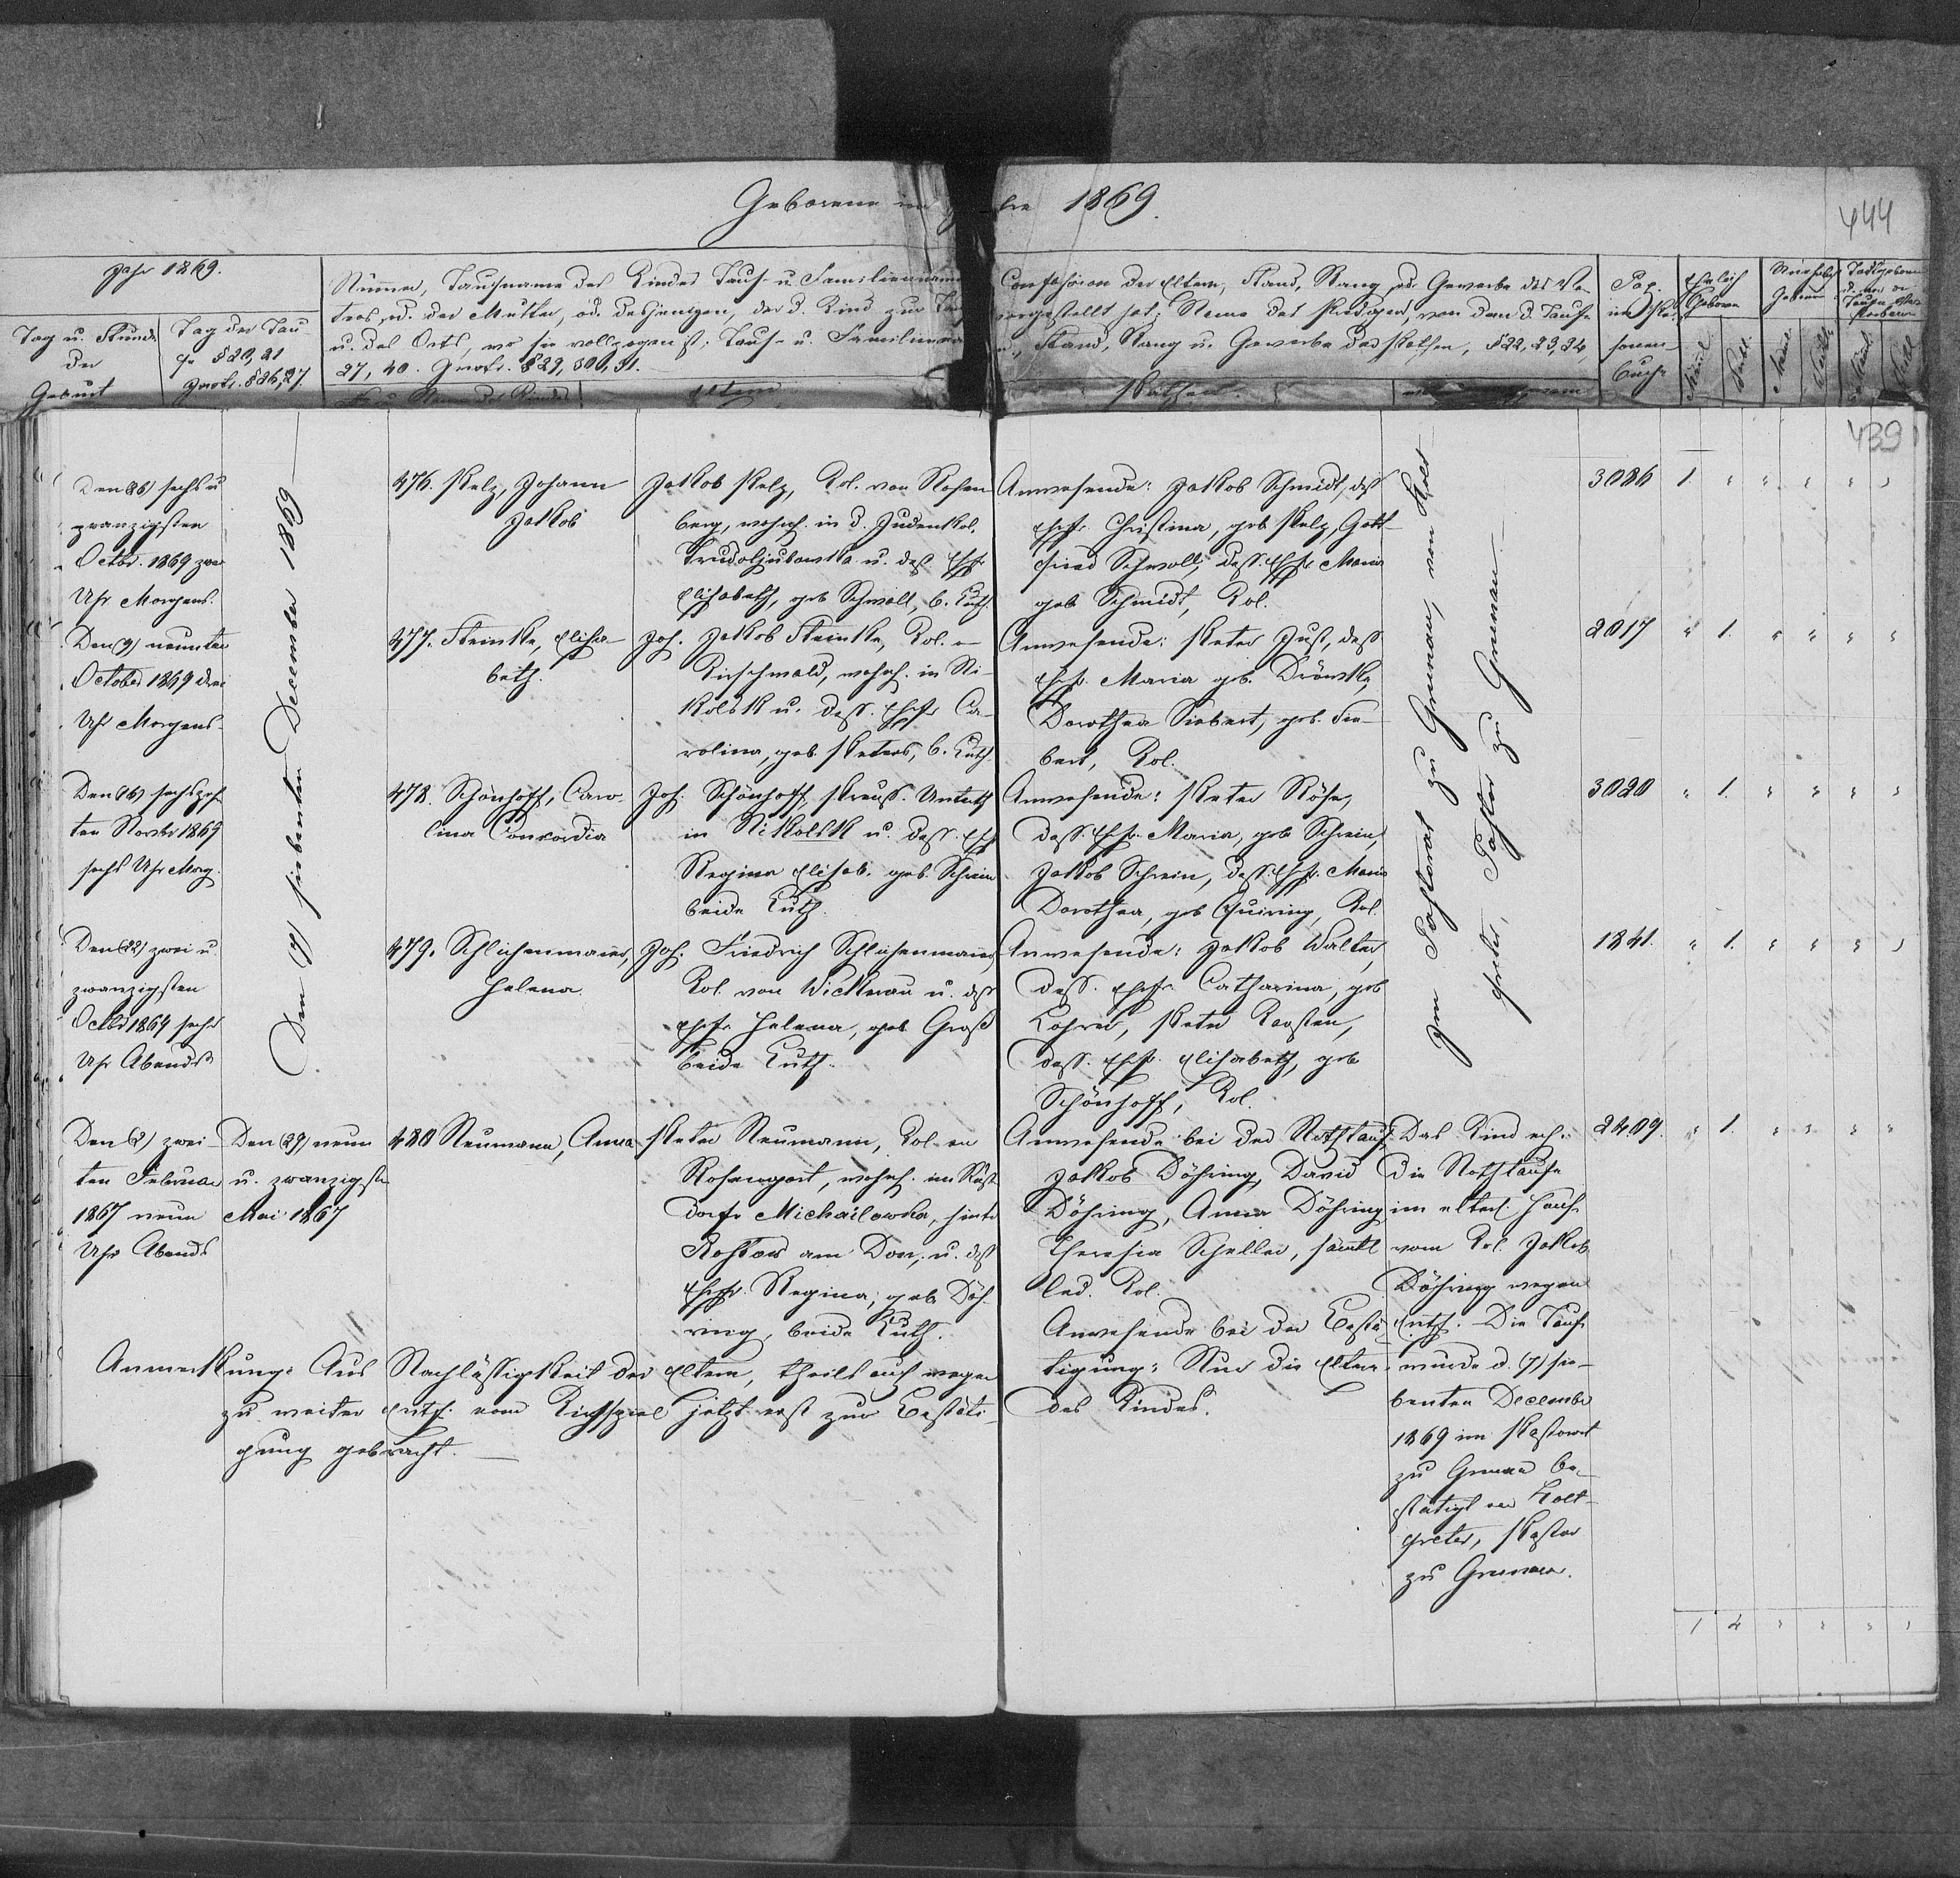 Geborene im
1869.
444
Jahr 1869.
Tag u. Stunde
der
Geburt
Tag der Tau-
fe § 20, 21
Instr. § 26, 27
Nummer, Taufname des Kindes Tauf- u. Familienname
ters, u. der Mutter, od. desjenigen, der d. Kind zur
u. des Orts, wo sie vollzogen ist; Tauf- u. Familienna
27, 40. Instr. § 29, 30, 31.
Eltern
Confession der Eltern, Stand, Rang od. Gewerbe des Va-
vorgestellt hat; Name des Predigers, von dem d. Taufe
u. Stand, Rang u. Gewerbe des Pathen, § 22, 23, 24,
Pathen.
Pag.
im Per-
sonen-
buche
Ehelich
Geboren
439
Den (26) sechs u
zwanzigsten
Octbr. 1869 zwei
Uhr Morgens.
Den (7) siebenten December 1869
476. Pelz, Johann
Jakob
Jakob Pelz, Kol. von Rosen
berg, wohnh. in d. Judenkol.
Trudoljubowka u. deß Ehfr
Elisabeth, geb Schwall, b. Luth.
Anwesende: Jakob Schmidt, deß
Ehfr. Christina, geb Pelz, Gott-
fried Schwall, deß. Ehfr. Maria
geb Schmidt, Kol.
Im Pastorat zu Grunau, von Holt
freter, Pastor zu Grunau
3086 1. " " " " "
Den (9) neunten
October 1869 drei
Uhr Morgens
477. Steinke, Elisa-
beth.
Joh. Jakob Steinke, Kol.
Kirschwald, wohnh. in Ni-
kolsk u. deß. Ehfr Ca-
rolina, geb. Peters, b. Luth.
Anwesende: Peter Just, deß
Ehfr. Maria geb.
Dorothea Siebert, geb. Sie-
bert, Kol.
2017 " 1. " " " "
Den (16) sechszehn
ten Novbr 1869
sechs Uhr Morg.
478. Schönhoff, Caro-
lina Concordia
Joh. Schönhoff, Preuß. Unterth
in Nikolsk u. deß. Ehf
Regina Elisab. geb. Schrein
beide Luth.
Anwesende: Peter Röhr,
deß. Ehfr. Maria, geb Schrein,
Jakob Schrein, deß. Ehfr. Maria
Dorothea, geb Quiring, Kol.
3020 " 1. " " " "
Den (22) zwei u.
zwanzigsten
Octbr 1869 sechs
Uhr Abends
479. Schlichenmaier,
Helena.
Joh. Friedrich Schlichenmaier,
Kol. von Wickerau u. deß
Ehfr Helena, geb. Groß
beide Luth.
Anwesende: Jakob Walter,
deß. Ehfr. Catharina, geb
Peter Karsten,
deß. Ehfr. Elisabeth, geb
Schönhoff, Kol.
1841. " 1. " " " "
Den (2) zwei-
ten Februar
1867 neun
Uhr Abends
Den (29) neun
u. zwanzigste
Mai 1867
480 Neumann, Anna
Peter Neumann, Kol. von
Rosengart, wohnh. im Russ
Dorfe Michailowka, hinter
Rostow am Don, u. deß
Ehfr. Regina, geb Döh-
ring, beide Luth.
Anwesende bei der Nothtaufe:
Jakob Döhring, David
Döhring, Anna Döhring
Theresia Scheller, sämtl
led. Kol.
Anwesende bei der Bestä-
tigung: Nur die Eltern
des Kindes.
Das Kind erh.
die Nothtaufe
im elterl. Hause
vom Kol. Jakob
Döhring wegen
Entf. Die Taufe
wurde d. (7) sie-
benten December
1869 im Pastorat
zu Grunau be-
stätigt von Holt-
freter, Pastor
zu Grunau.
2409. " 1. " " " "
Anmerkung: Aus Nachlässigkeit der Eltern, theils auch wegen
zu weiter Entf. vom Kirchspiel jetzt erst zur Bestäti-
gung gebracht.
1 4 " " " "